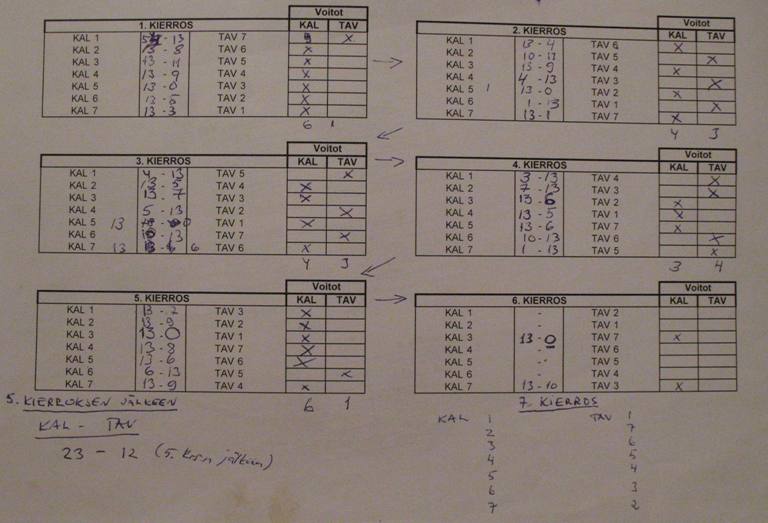 Voitot
1. KIERROS KAL TAV
KAL 1 - 13 TAV 7 X
KAL 2 13 - 8 TAV 6 X
KAL 3 13 - 11 TAV 5 X
KAL 4 13 - 9 TAV 4 X
KAL 5 13 - 0 TAV 3 X
KAL 6 13 - TAV 2 X
KAL 7 13 - 3 TAV 1 X
6 1
Voitot
2. KIERROS KAL TAV
KAL 1 13 - 4 TAV 6 X
KAL 2 10 - 13 TAV 5 X
KAL 3 13 - 9 TAV 4 X
KAL 4 4 - 13 TAV 3 X
KAL 5 13 - 0 TAV 2 X
KAL 6 1 - 13 TAV 1 X
KAL 7 13 - 1 TAV 7 X
4 3
Voitot
3. KIERROS KAL TAV
KAL 1 4 - 13 TAV 5 X
KAL 2 13 - 5 TAV 4 X
KAL 3 13 - 7 TAV 3 X
KAL 4 5 - 13 TAV 2 X
KAL 5 13 - 0 TAV 1 X
KAL 6 - 13 TAV 7 X
KAL 7 13 - 6 TAV 6 X
4 3
Voitot
4. KIERROS KAL TAV
KAL 1 3 - 13 TAV 4 X
KAL 2 7 - 13 TAV 3 X
KAL 3 13 - 6 TAV 2 X
KAL 4 13 - 5 TAV 1 X
KAL 5 13 - 6 TAV 7 X
KAL 6 10 - 13 TAV 6 X
KAL 7 1 - 13 TAV 5 X
3 4
Voitot
5. KIERROS KAL TAV
KAL 1 13 - 2 TAV 3 X
KAL 2 13 - 9 TAV 2 X
KAL 3 13 - 0 TAV 1 X
KAL 4 13 - 8 TAV 7 X
KAL 5 13 - 6 TAV 6 X
KAL 6 6 - 13 TAV 5 X
KAL 7 13 - 9 TAV 4 X
6 1
Voitot
6. KIERROS KAL TAV
KAL 1 - TAV 2
KAL 2 - TAV 1
KAL 3 13 - 0 TAV 7 X
KAL 4 - TAV 6
KAL 5 - TAV 5
KAL 6 - TAV 4
KAL 7 13 - 10 TAV 3 X
5. KIERROKSEN JÄLKEEN
KAL - TAV
23 - 12 (5. krs:n jälkeen)
7. KIERROS
KAL 1 TAV 1
2 7
3 6
4 5
5 4
6 3
7 2